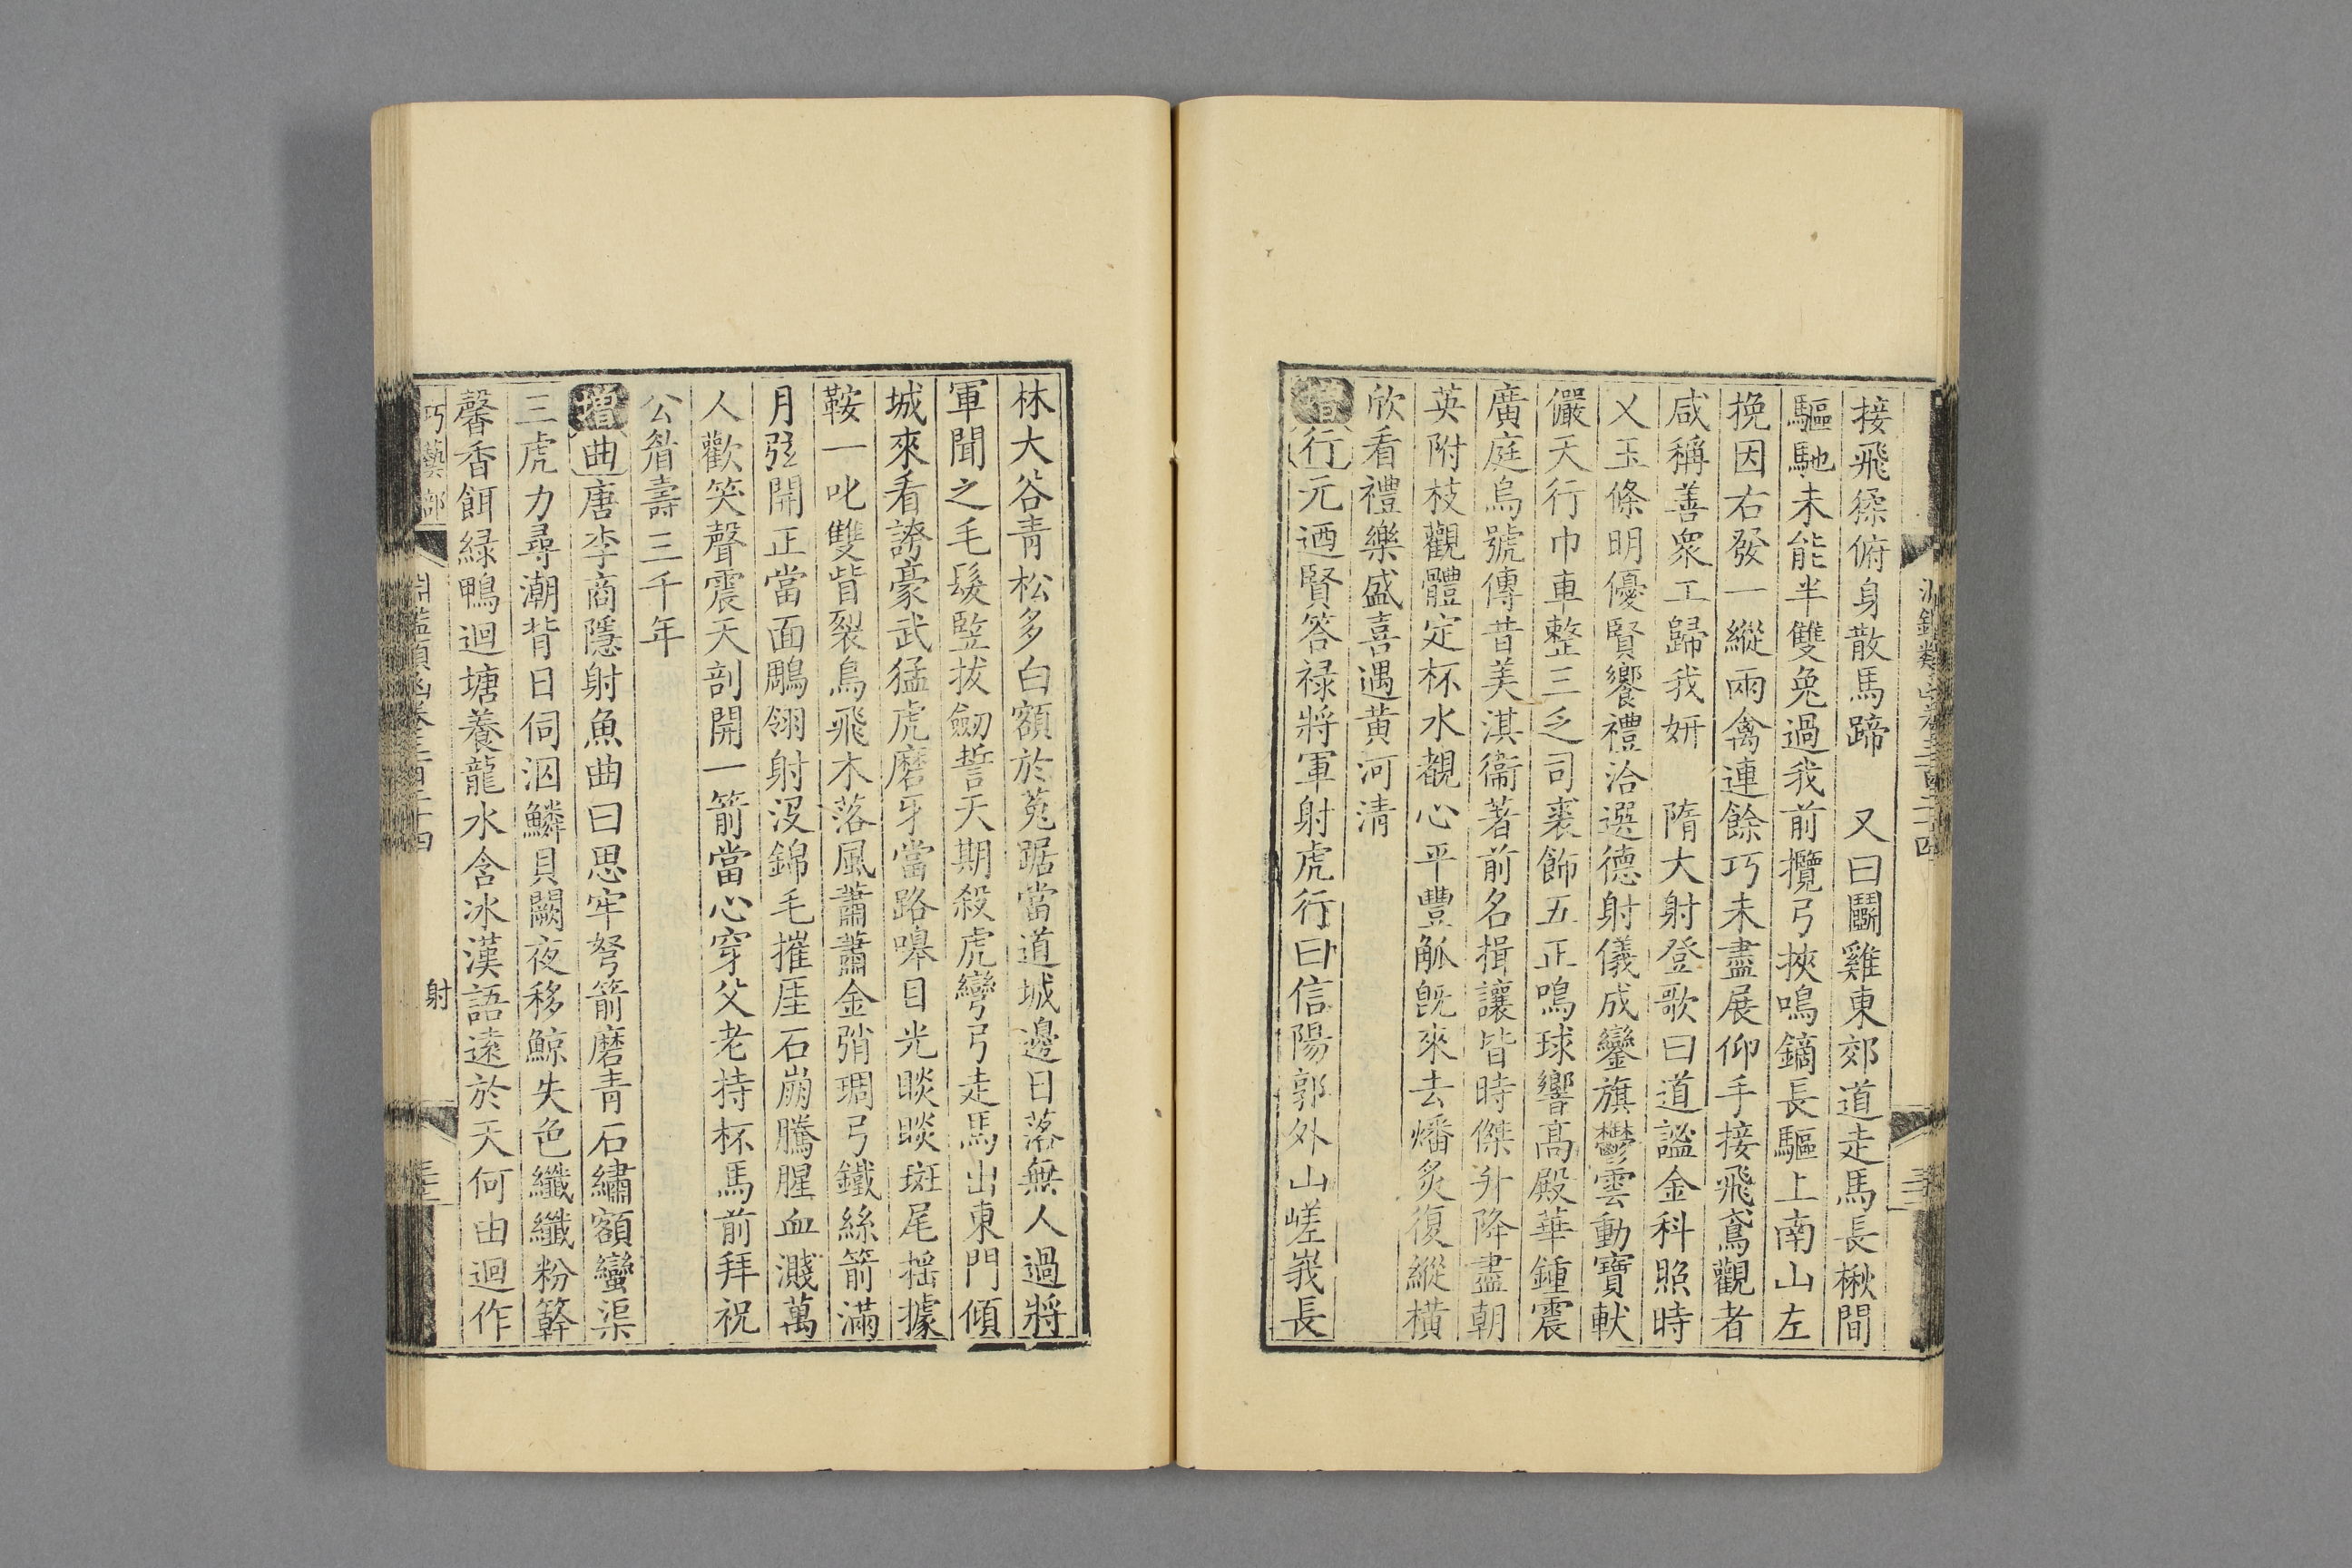 接飛猱俯身散馬蹄　又曰鬭雞東郊道走馬長楸間
驅馳未能半雙兔過我前攬弓挾鳴鏑長驅上南山左
挽因右發一縱兩禽連餘巧未盡展仰手接飛鳶觀者
咸稱善衆工歸我妍　隋大射登歌曰道謐金科照時
乂玉條明優賢饗禮洽選德射儀成鑾旗鬱雲動寶軑
儼天行巾車整三乏司裘飾五正鳴球響高殿華鍾震
廣庭烏號傳昔美淇衞著前名揖讓皆時傑升降盡朝
英附枝觀體定杯水觀心平豐觚旣來去燔炙復縱橫
欣看禮樂盛喜遇黄河清
增行元迺賢答禄將軍射虎行曰信陽郭外山嵯峩長
林大谷青松多白額於菟踞當道城邊日落無人過將
軍聞之毛髮竪拔劒誓天期殺虎彎弓走馬出東門傾
城來看誇豪武猛虎磨牙當路嘷目光睒睒斑尾摇據
鞍一叱雙眥裂鳥飛木落風蕭蕭金弰琱弓鐵絲箭滿
月弦開正當面鵰翎射没錦毛摧厓石崩騰腥血濺萬
人歡笑聲震天剖開一箭當心穿父老持杯馬前拜祝
公眉壽三千年
增曲唐李商隱射魚曲曰思牢弩箭磨青石繡額蠻渠
三虎力尋潮背日伺泅鱗貝闕夜移鯨失色纖纖粉簳
馨香餌緑鴨迴塘養龍水含冰漢語遠於天何由迴作
巧藝部
淵鑑類函卷三百二十四
射